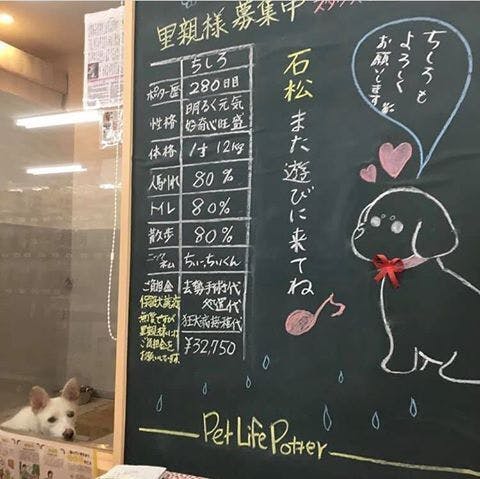 里親様募集中
ちしろ
ポッター歴 280日目
性格 明るく元気
好奇心旺盛
体格 1才 12kg
人馴れ 80%
トイレ 80%
散歩 80%
ニックネーム ちぃ、ちぃくん
ご負担金
保護犬譲渡
無償ですが
里親様には
ご負担金を
お願いしています。
去勢手術代
処置代
狂犬病接種代
¥32,750
石松また遊びに来てね
ちしろも
よろしく
お願いします
Pet Life Potter